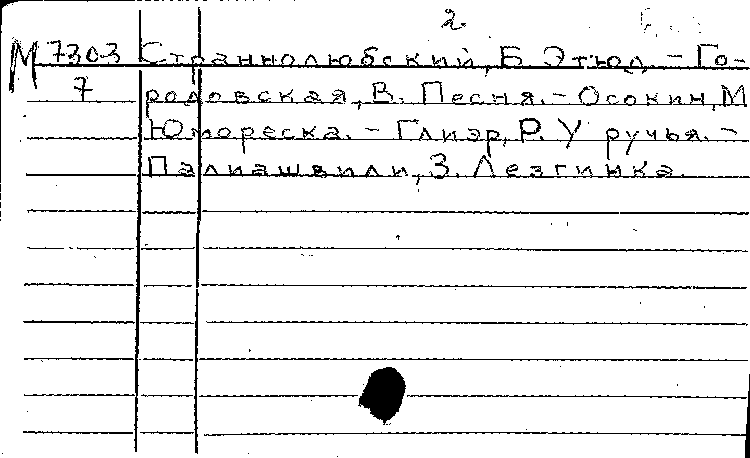 2
М 7303 Страннолюбский, Б. Этюд. - Го-
7 родовская, В. Песня. - Осокин, М
Юмореска. - Глиэр, Р. У ручья. -
Палиашвили, З. Лезгинка.